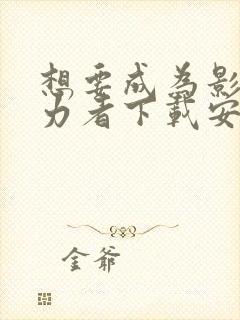 想要成为影
力者下载安
金爷